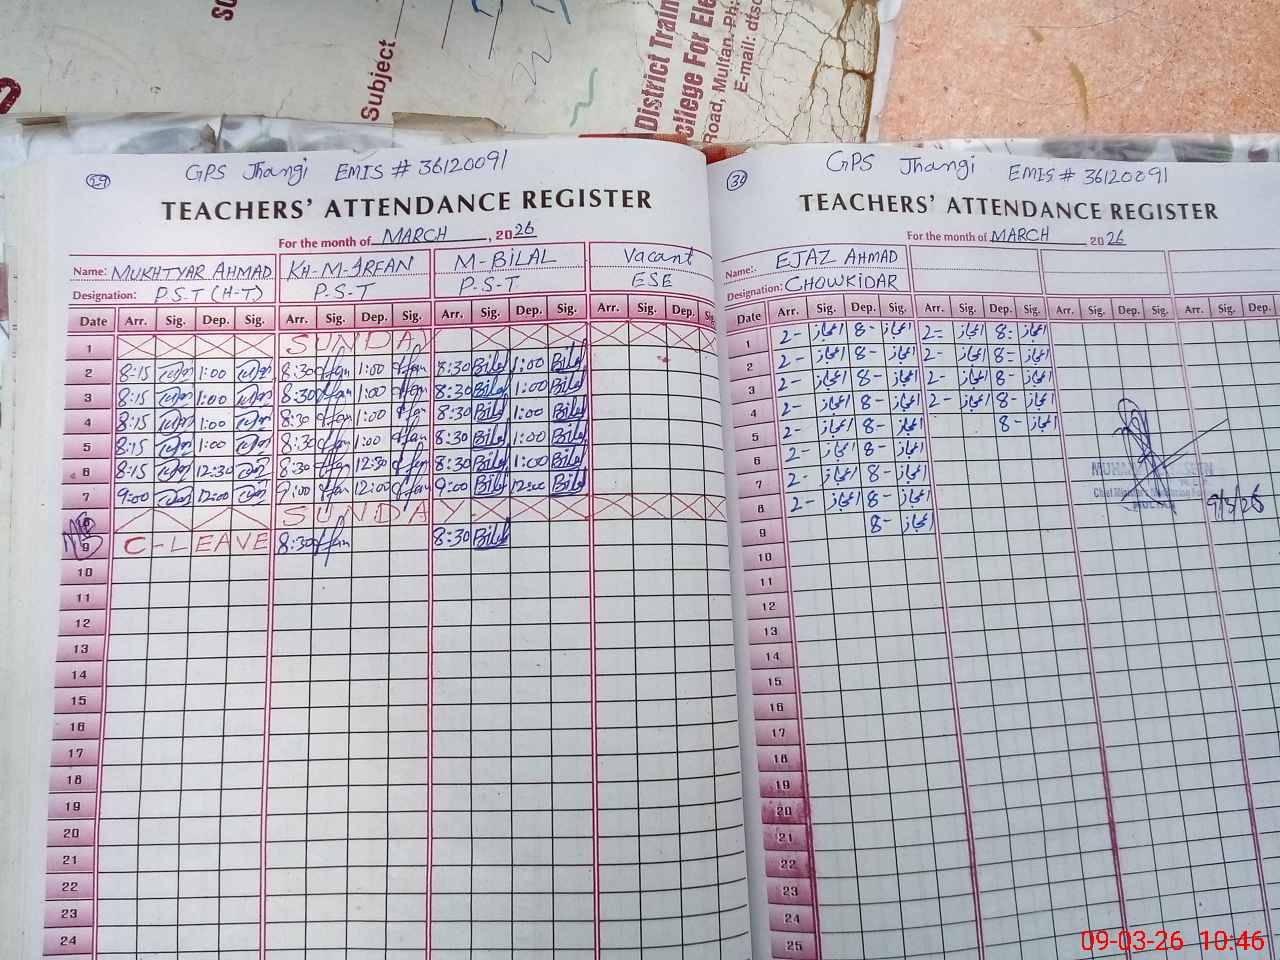 Subject
District Train
College For Ele
Road, Multan. Ph:
E-mail: dtsc
GPS Jhangi EMIS # 36120091
TEACHERS’ ATTENDANCE REGISTER
For the month of MARCH, 2026
Name: MUKHTYAR AHMAD KH-M-IRFAN M-BILAL Vacant
Designation: P.S.T (H-T) P-S-T P-S-T ESE
Date Arr. Sig. Dep. Sig. Arr. Sig. Dep. Sig. Arr. Sig. Dep. Sig. Arr. Sig. Dep. Sig.
1 SUNDAY
2 8:15 1:00 8:30 Irfan 1:00 Irfan 8:30 Bilal 1:00 Bilal
3 8:15 1:00 8:30 Irfan 1:00 Irfan 8:30 Bilal 1:00 Bilal
4 8:15 1:00 8:30 Irfan 1:00 Irfan 8:30 Bilal 1:00 Bilal
5 8:15 1:00 8:30 Irfan 1:00 Irfan 8:30 Bilal 1:00 Bilal
6 8:15 12:30 8:30 Irfan 12:30 Irfan 8:30 Bilal 1:00 Bilal
7 9:00 12:00 9:00 Irfan 12:00 Irfan 9:00 Bilal 12:00 Bilal
SUNDAY
9 C-LEAVE 8:30 Irfan 8:30 Bilal
10
11
12
13
14
15
16
17
18
19
20
21
22
23
24
30
GPS Jhangi EMIS # 36120091
TEACHERS’ ATTENDANCE REGISTER
For the month of MARCH 2026
Name: EJAZ AHMAD
Designation: CHOWKIDAR
Date Arr. Sig. Dep. Sig. Arr. Sig. Dep. Sig. Arr. Sig. Dep. Sig. Arr. Sig. Dep.
1 2- اعجاز 8- اعجاز 2- اعجاز 8- اعجاز
2 2- اعجاز 8- اعجاز 2- اعجاز 8- اعجاز
3 2- اعجاز 8- اعجاز 2- اعجاز 8- اعجاز
4 2- اعجاز 8- اعجاز 2- اعجاز 8- اعجاز
5 2- اعجاز 8- اعجاز 8- اعجاز
6 2- اعجاز 8- اعجاز
7 2- اعجاز 8- اعجاز
8 2- اعجاز 8- اعجاز
9 8- اعجاز
9/3/26
10
11
12
13
14
15
16
17
18
19
20
21
22
23
24
25
09-03-26 10:46